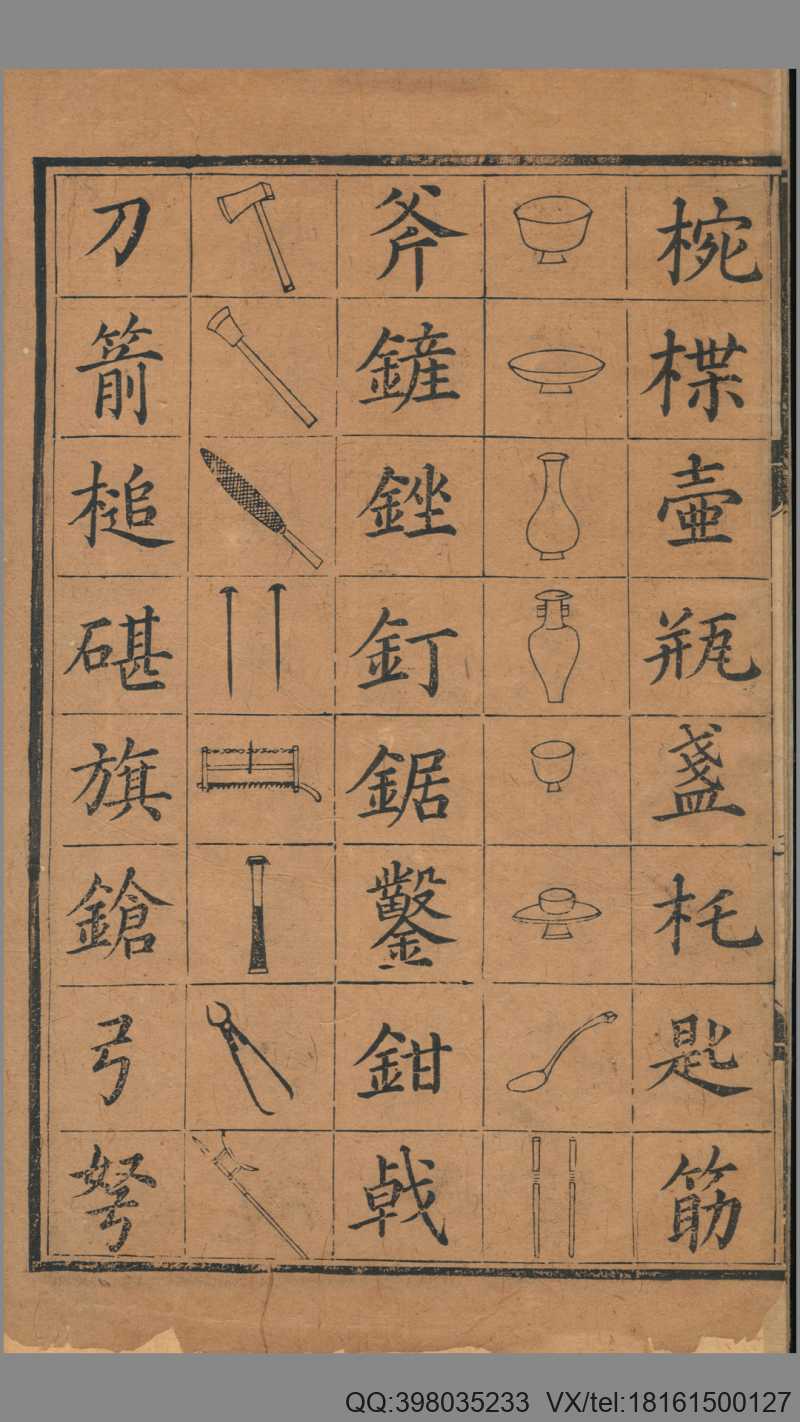 椀楪壺瓶盞枆匙筯
斧鏟銼釘鋸鑿鉗戟
刀箭槌碪旗鎗弓弩
QQ:398035233 VX/tel:18161500127